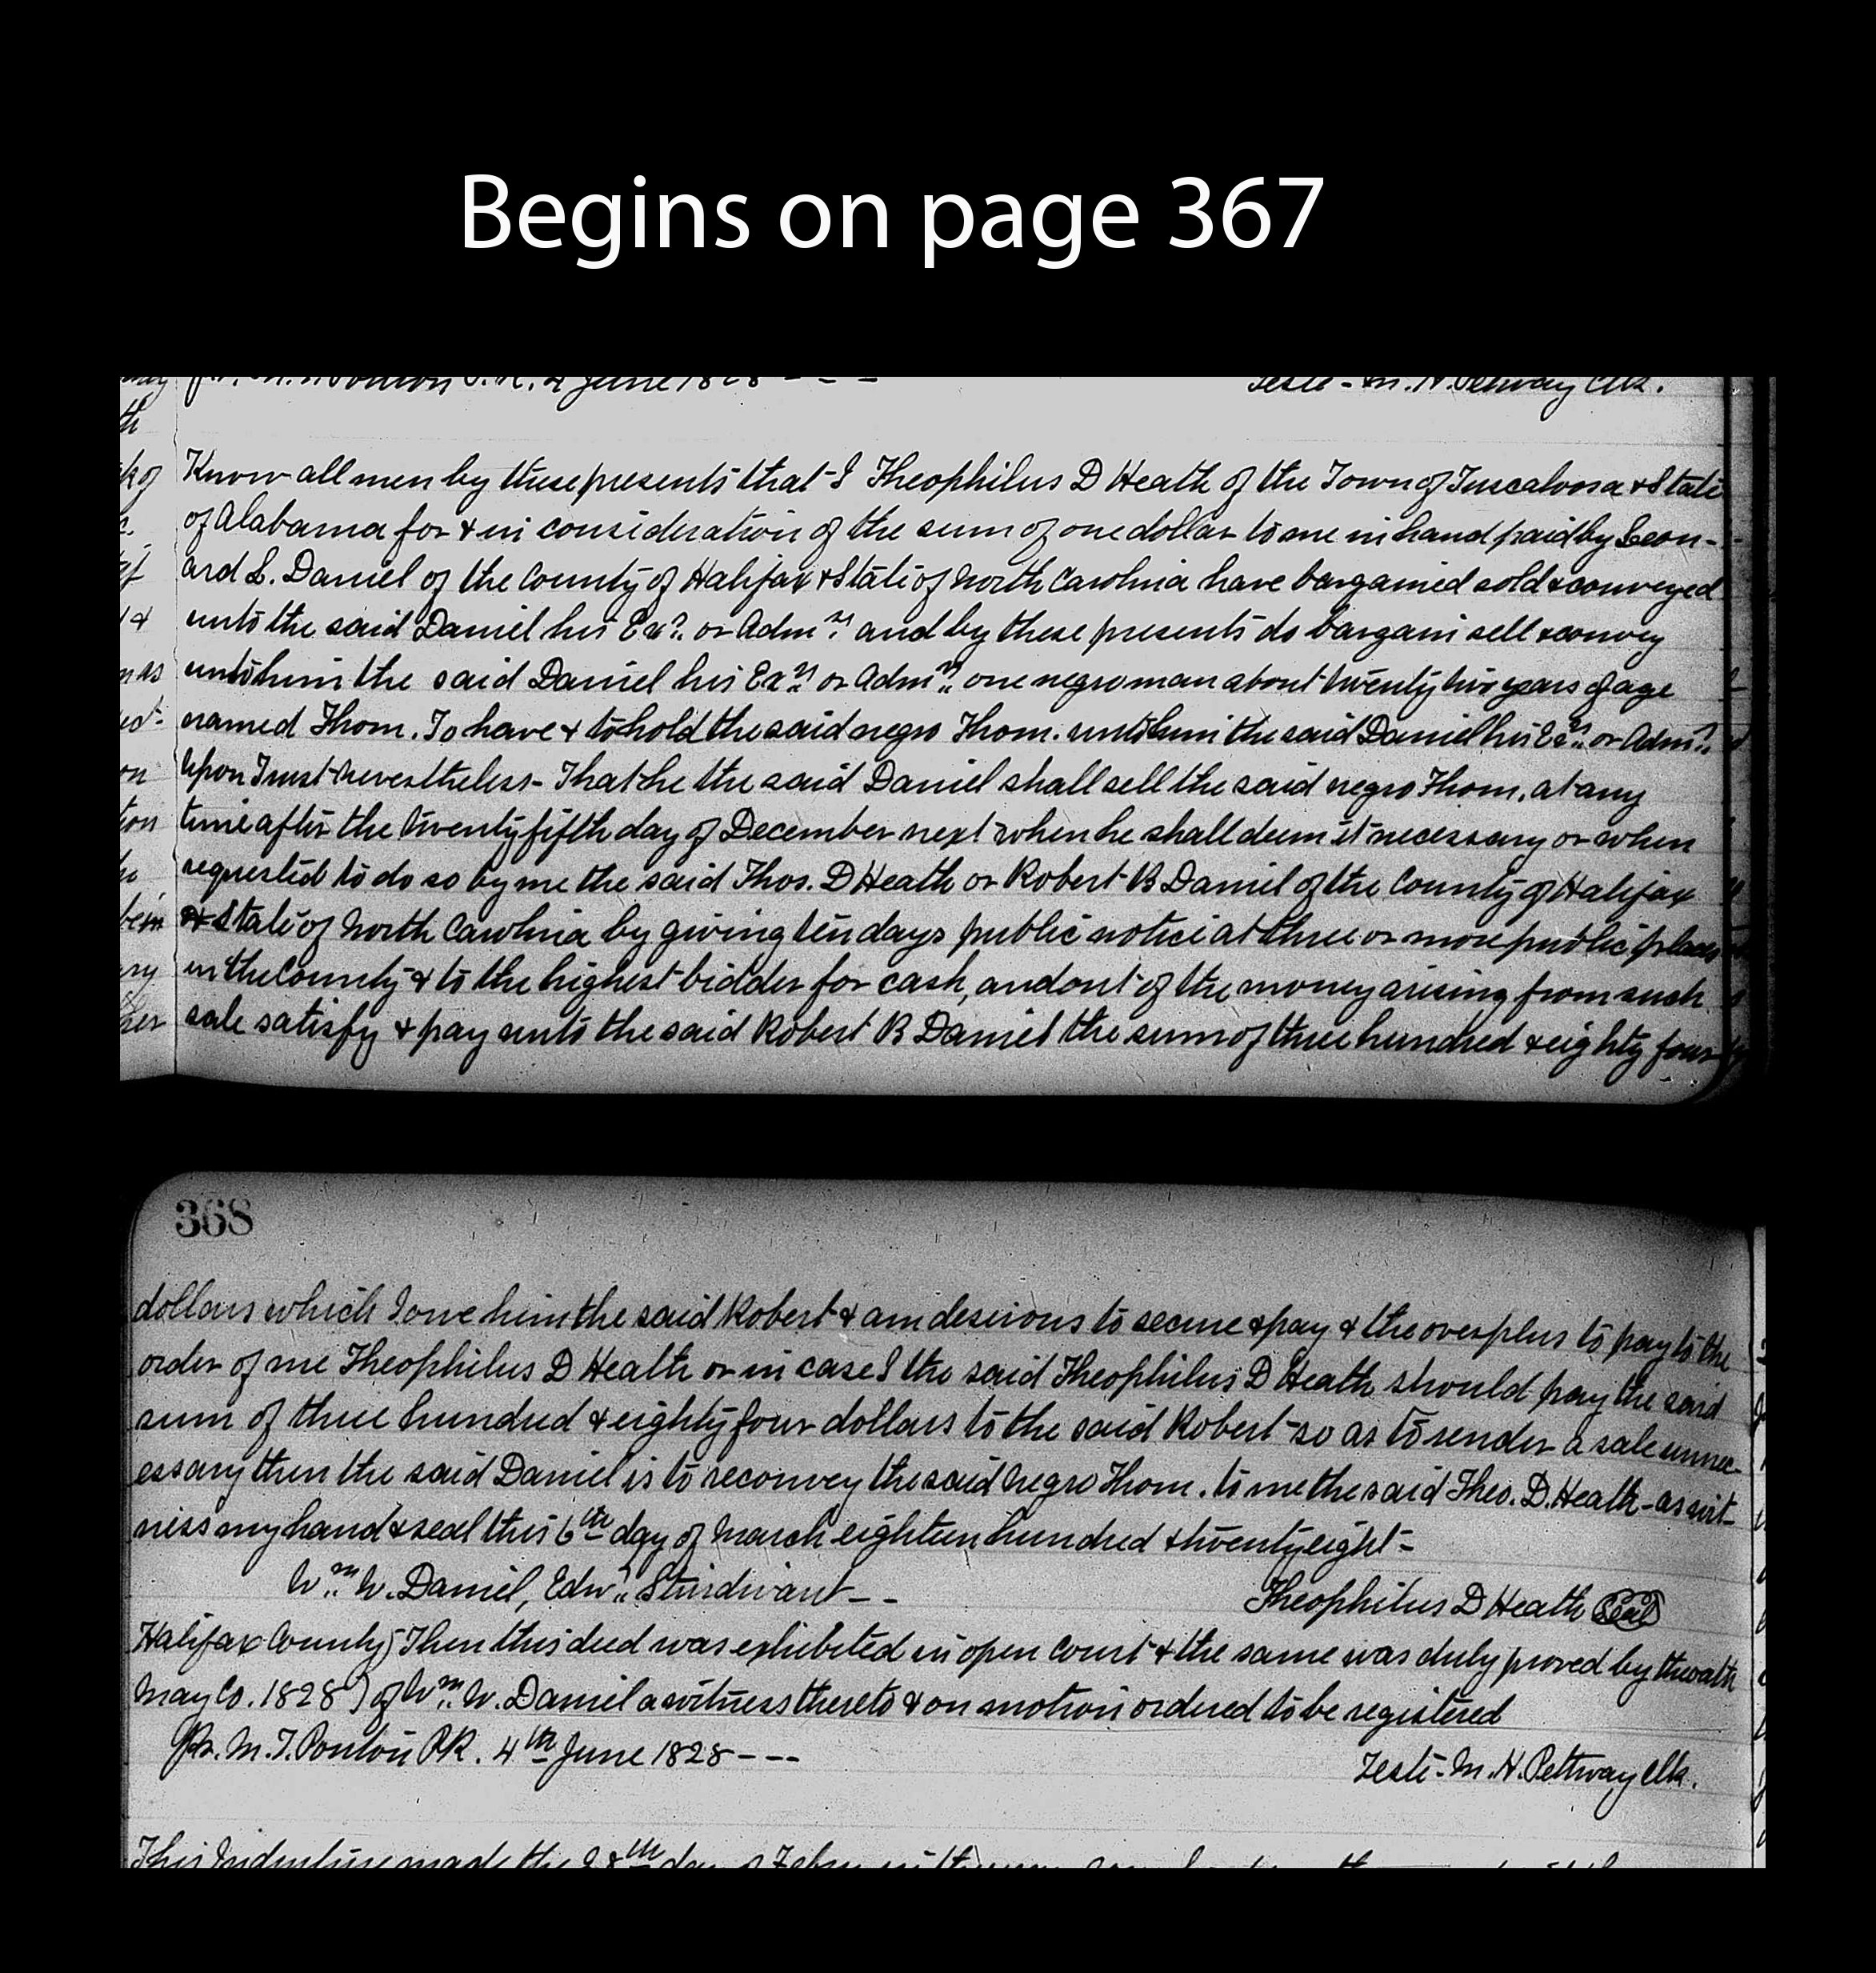 Begins on page 367
June 1828 - - -
Teste - M. H. Pettway Clk.
Know all men by these presents that I Theophilus D Heath of the Town of Tuscaloosa & State
of Alabama for & in consideration of the sum of one dollar to me in hand paid by Leon-
ard L. Daniel of the County of Halifax & State of North Carolina have bargained sold & conveyed
unto the said Daniel his Exrs. or Admrs. and by these presents do bargain sell & convey
unto him the said Daniel his Exrs. or Admrs. one negro man about twenty two years of age
named Thom. To have & to hold the said negro Thom. unto him the said Daniel his Exrs. or Admrs.
Upon Trust nevertheless - That he the said Daniel shall sell the said negro Thom, at any
time after the twenty fifth day of December next when he shall deem it necessary or when
requested to do so by me the said Thos. D Heath or Robert B Daniel of the County of Halifax
& State of North Carolina by giving ten days public notice at three or more public places
in the County & to the highest bidder for cash, and out of the money arising from such
sale satisfy & pay unto the said Robert B Daniel the sum of three hundred & eighty four
368
dollars which I owe him the said Robert & am desirous to secure & pay & the overplus to pay to the
order of me Theophilus D Heath or in case I the said Theophilus D Heath should pay the said
sum of three hundred & eighty four dollars to the said Robert so as to render a sale unnec-
essary then the said Daniel is to reconvey the said negro Thom. to me the said Theo. D. Heath - as wit-
ness my hand & seal this 6th day of March eighteen hundred & twenty eight -
Wm. W. Daniel, Edwd. Sturdivant - -
Theophilus D Heath Seal
Halifax County } Then this deed was exhibited in open Court & the same was duly proved by the oath
May Co. 1828 } of Wm. W. Daniel a witness thereto & on motion ordered to be registered
Pr. M. T. Ponton P.R. 4th June 1828 - - -
Teste - M. H. Pettway Clk.
This Indenture made the 28th day of Feby.